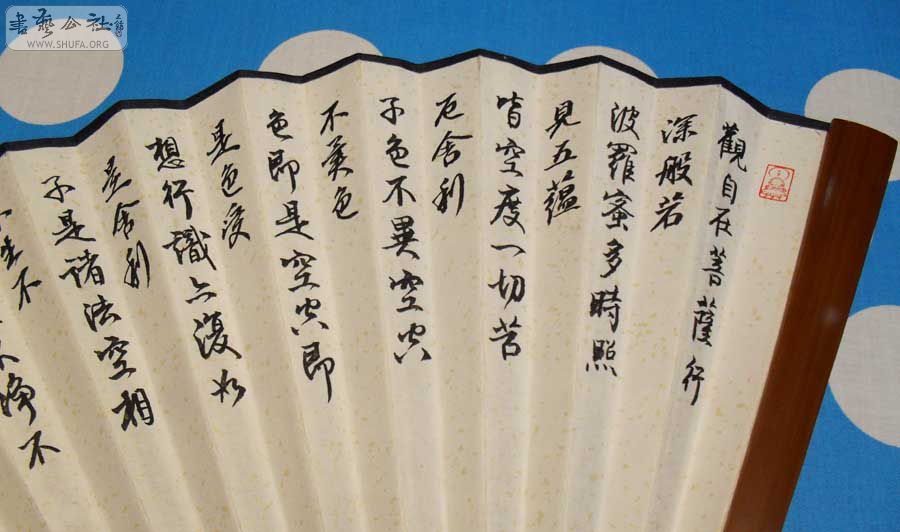 觀自在菩薩行
深般若
波羅蜜多時照
見五蘊
皆空度一切苦
厄舍利
子色不異空空
不異色
色即是空空即
是色受
想行識亦復如
是舍利
子是諸法空相
不生不
不淨不
書藝公社
WWW.SHUFA.ORG